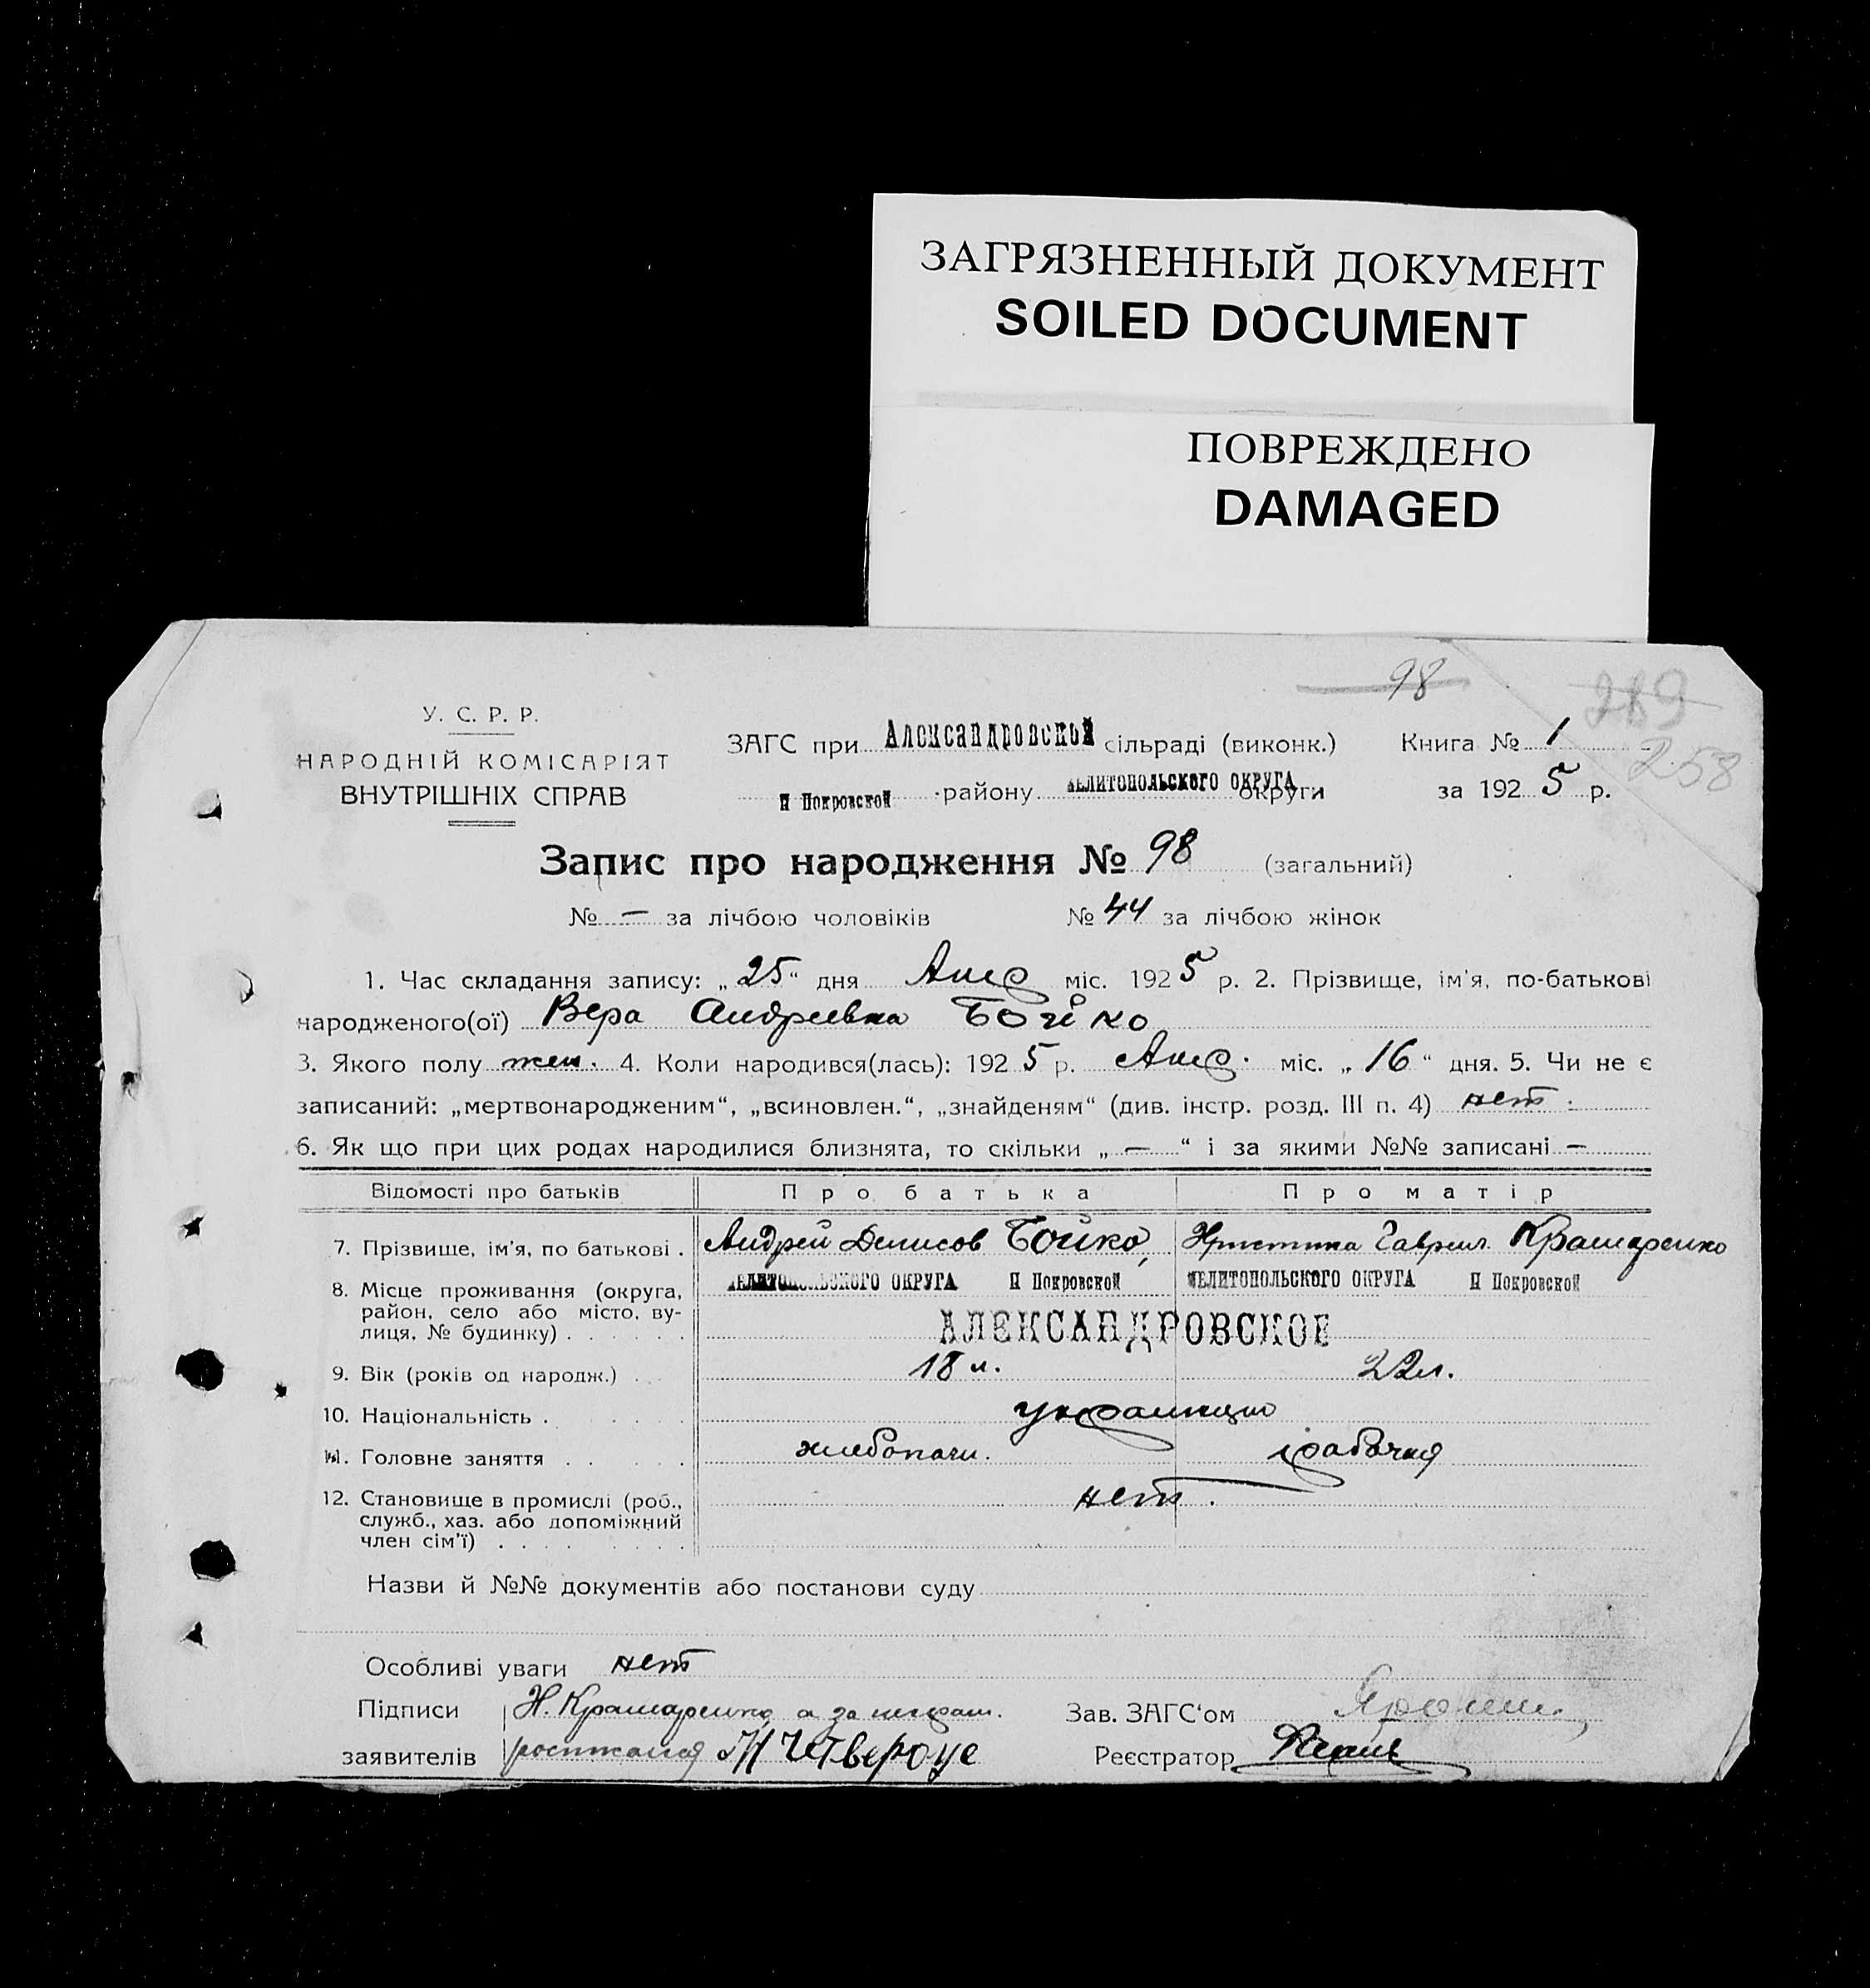 ЗАГРЯЗНЕННЫЙ ДОКУМЕНТ
SOILED DOCUMENT
ПОВРЕЖДЕНО
DAMAGED
98
269
258
У. С. Р. Р.
НАРОДНІЙ КОМІСАРІЯТ
ВНУТРІШНІХ СПРАВ
ЗАГС при Александровской сільраді (виконк.) Книга № 1
Н Покровской району МЕЛИТОПОЛЬСКОГО ОКРУГА округи за 192 5 р.
Запис про народження № 98 (загальний)
№ — за лічбою чоловіків № 44 за лічбою жінок
1. Час складання запису: „25“ дня міс. 1925 р. 2. Прізвище, ім'я, по-батькові
народженого(ої) Вера Андреевна Бойко
3. Якого полу жен. 4. Коли народився(лась): 1925 р. міс. „16“ дня. 5. Чи не є
записаний: „мертвонародженим“, „всиновлен.“, „знайденям“ (див. інстр. розд. III п. 4) нет.
6. Як що при цих родах народилися близнята, то скільки „—“ і за якими №№ записані —
Відомості про батьків Про батька Про матір
7. Прізвище, ім'я, по батькові . Андрей Денисов Бойко, Христина Гаврил. Крамаренко
8. Місце проживання (округа, район, село або місто, ву-лиця, № будинку) . МЕЛИТОПОЛЬСКОГО ОКРУГА Н Покровской МЕЛИТОПОЛЬСКОГО ОКРУГА Н Покровской
АЛЕКСАНДРОВСКОЕ
9. Вік (років од народж.) 18 л. 22 л.
10. Національність . украинцы
11. Головне заняття . хлебопаш. рабочая
12. Становище в промислі (роб., служб., хаз. або допоміжний член сім'ї) . нет.
Назви й №№ документів або постанови суду
Особливі уваги нет
Підписи Н. Крамаренко, а за неграм. Зав. ЗАГС'ом
заявителів Реєстратор